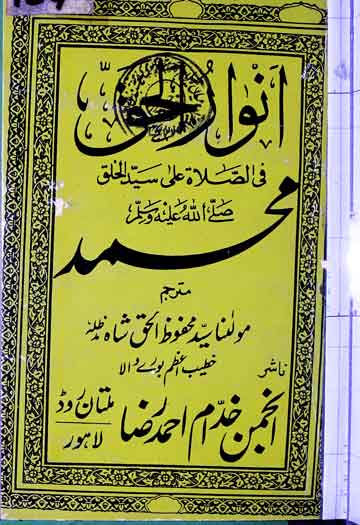 انوار الحق
فی الصلاة علی سید الخلق
صلی اللہ علیہ وسلم
محمد
مترجم
مولٰنا سید محفوظ الحق شاہ مدظلہٗ
خطیب اعظم بورے والا
ناشر
انجمن خدام احمد رضا ملتان روڈ
لاہور